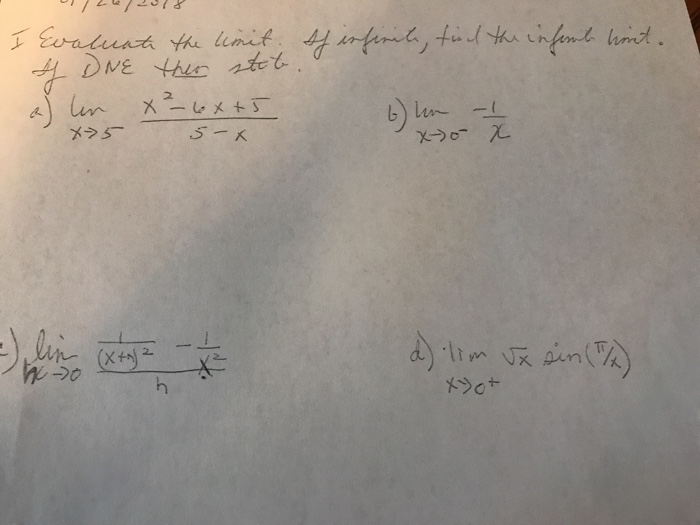 I Evaluate the limit. If infinite, find the infinite limit.
If DNE then state.
a) lim x→5 x²-6x+5 / 5-x
b) lim x→0⁻ -1/x
c) lim h→0 1/(x+h)² - 1/x² / h
d) lim x→0+ √x sin(π/x)